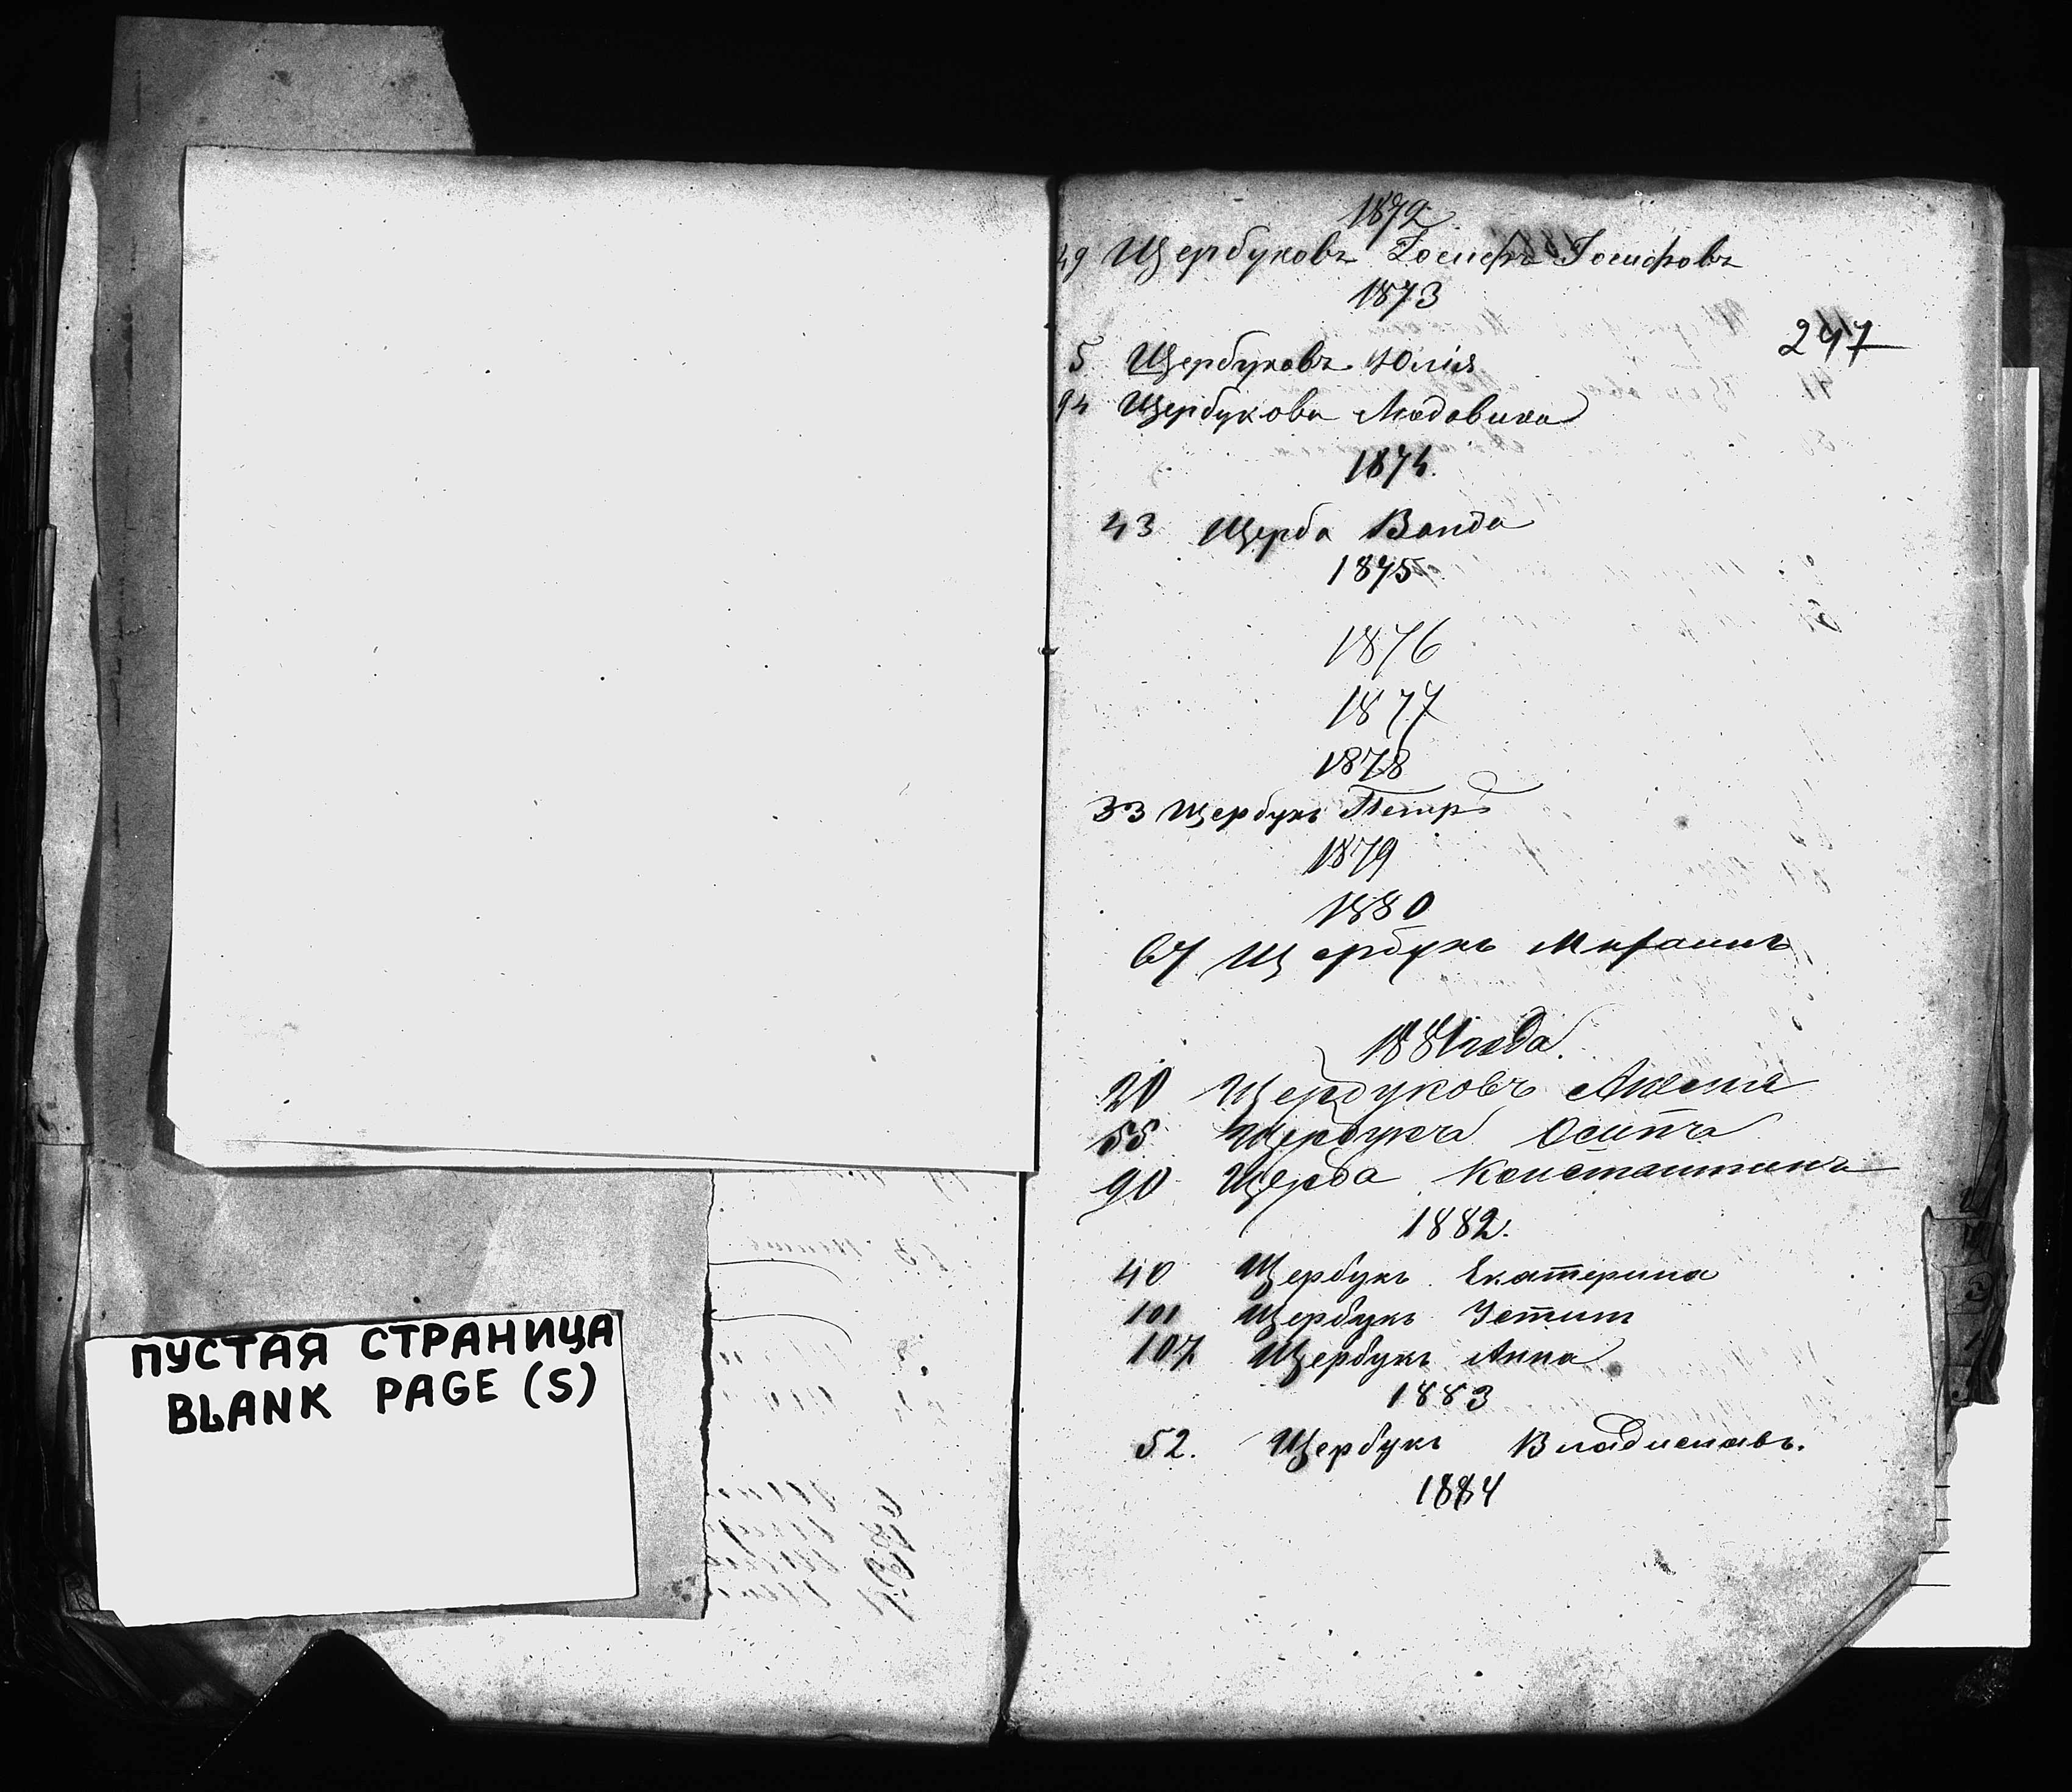 ПУСТАЯ СТРАНИЦА
BLANK PAGE (S)
1872
49 Щербуковъ Іосифъ Іосифовъ
1873
247
5 Щербуковъ Юлія
94 Щербукова Людовика
1874.
43 Щерба Ванда
1875
1876
1877
1878
33 Щербукъ Петръ
1879
1880
67 Щербукъ
1881 года.
20 Щербуковъ
55 Щербукъ Осипъ
90 Щерба Константинъ
1882.
40 Щербукъ Екатерина
101 Щербукъ Устин
107 Щербукъ Анна
1883
52. Щербукъ Владиславъ.
1884